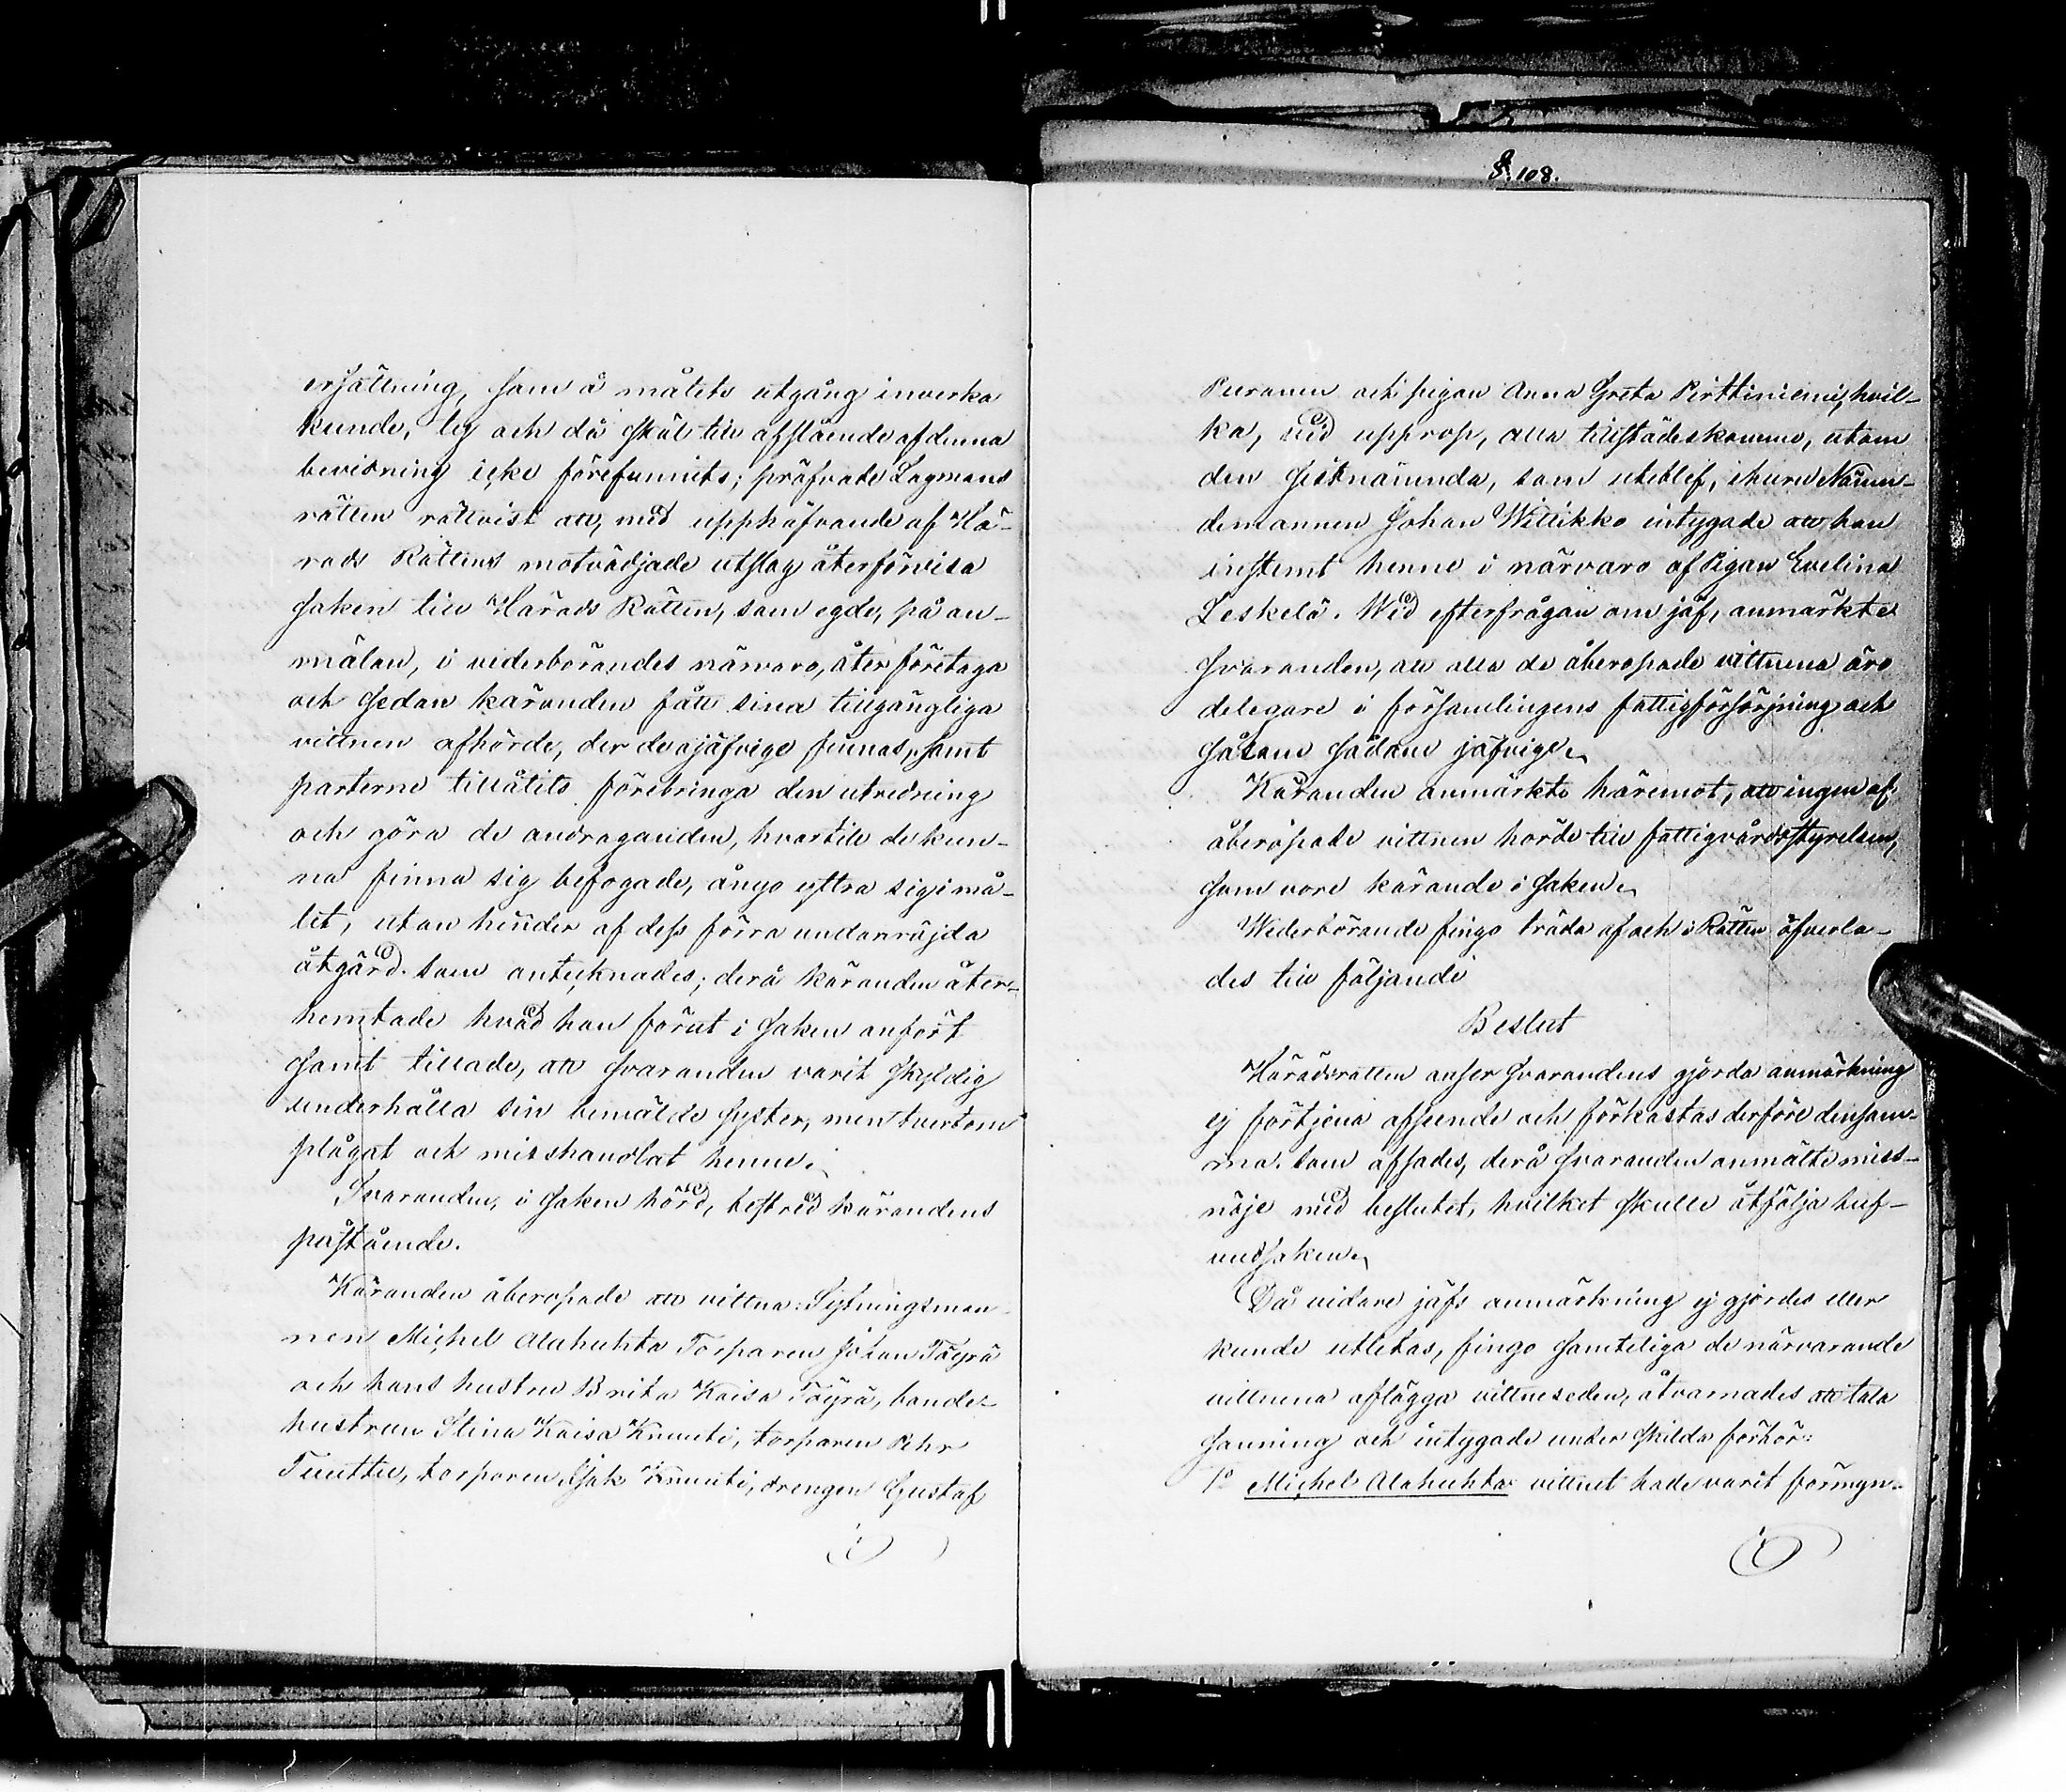 ersättning, som å målets utgång inverka
kunde, ty och då skäl till afslående af denna
bevisning icke förefunnits; pröfvade Lagmans
rätten rättvist att, med upphäfvande af Hä-
rads Rättens motvädjade utslag återförvisa
saken till Härads Rätten, som egde, på an-
mälan, i vederbörandes närvaro, åter företaga
och sedan käranden fått sina tillgängliga
vittnen afhörde, der de ojäfvige finnas, samt
parterne tillåtits förebringa den utredning
och göra de andraganden, hvartill de kun-
na finna sig befogade, ånyo yttra sig i må-
let, utan hinder af dess förra undanröjda
åtgärd. som antecknades; derå käranden åter-
hemtade hvad han förut i saken anfört
samt tillade, att svaranden varit skyldig
underhålla sin bemälde syster, men tvertom
plågat och misshandlat henne.
Svaranden, i saken hörd, bestred kärandens
påstående.
Käranden åberopade att vittna: Sytningsman-
nen Michel Alahuhta Torparen Johan Töyrä
och hans hustru Brita Kaisa Töyrä, bonde-
hustrun Stina Kaisa Knuuti, torparen Pehr
Tuuttu, torparen Isak Knuuti, drengen Gustaf
§. 108.
Puranen och pigan Anna Greta Pirttiniemi, hvil-
ka, vid upprop, alla tillstädeskommo, utom
den sistnämnda, som uteblef, ehuru Näm-
demannen Johan Wittikko intygade att han
instemt henne i närvaro af Pigan Evelina
Leskelä. Wid efterfrågan om jäf, anmärkte
svaranden, att alla de åberopade vittnena äro
delegare i församlingens fattigförsörjning och
såsom sådane jäfvige.
Käranden anmärkte häremot, att ingen af
åberopade vittnen hörde till fattigvårdsstyrelsen,
som vore kärande i saken.
Wederbörande fingo träda af och i Rätten öfverla-
des till följande
Beslut
Häradsrätten anser svarandens gjorda anmärkning
ej förtjena afseende och förkastas derföre densam-
ma. som afsades, derå svaranden anmälte miss-
nöje med beslutet, hvilket skulle åtfölja huf-
vudsaken.
Då vidare jäfs anmärkning ej gjordes eller
kunde utletas, fingo samteliga de närvarande
vittnena aflägga vittneseden, åtvarnades att tala
sanning och intygade under skilda förhör:
1º Michel Alahuhta: vittnet hade varit förmyn-